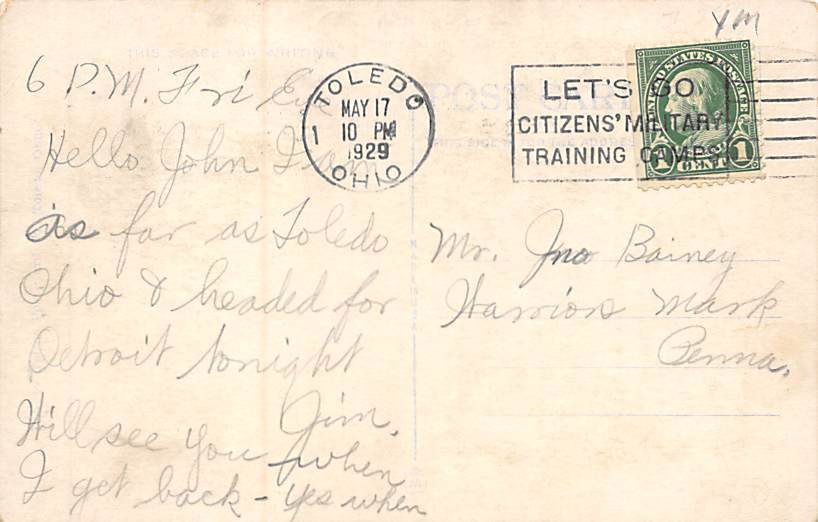 YM
6 P.M. Fri Eve
Hello John I am
as far as Toledo
Ohio & headed for
Detroit tonight
Jim.
Will see you when
I get back - yes when
TOLEDO
MAY 17
1 10 PM
1929
OHIO
LET'S GO
CITIZENS' MILITARY
TRAINING CAMPS
UNITED STATES POSTAGE
1 CENT 1
THIS SPACE FOR WRITING
POST CARD
Mr. Jno Bainey
Warriors Mark
Penna.